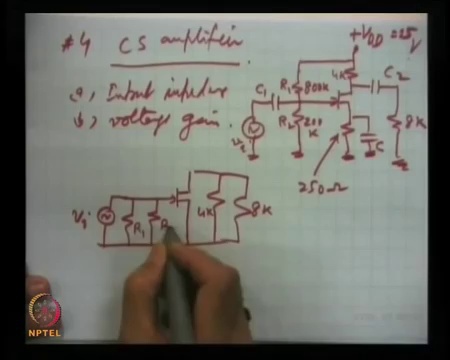 #4 CS amplifier
a, Input impedance
b, voltage gain.
+VDD = 25V
4K
C2
C1
R1
800K
R2
200
K
8K
C
250Ω
Vi
R1
R
4K
8K
NPTEL